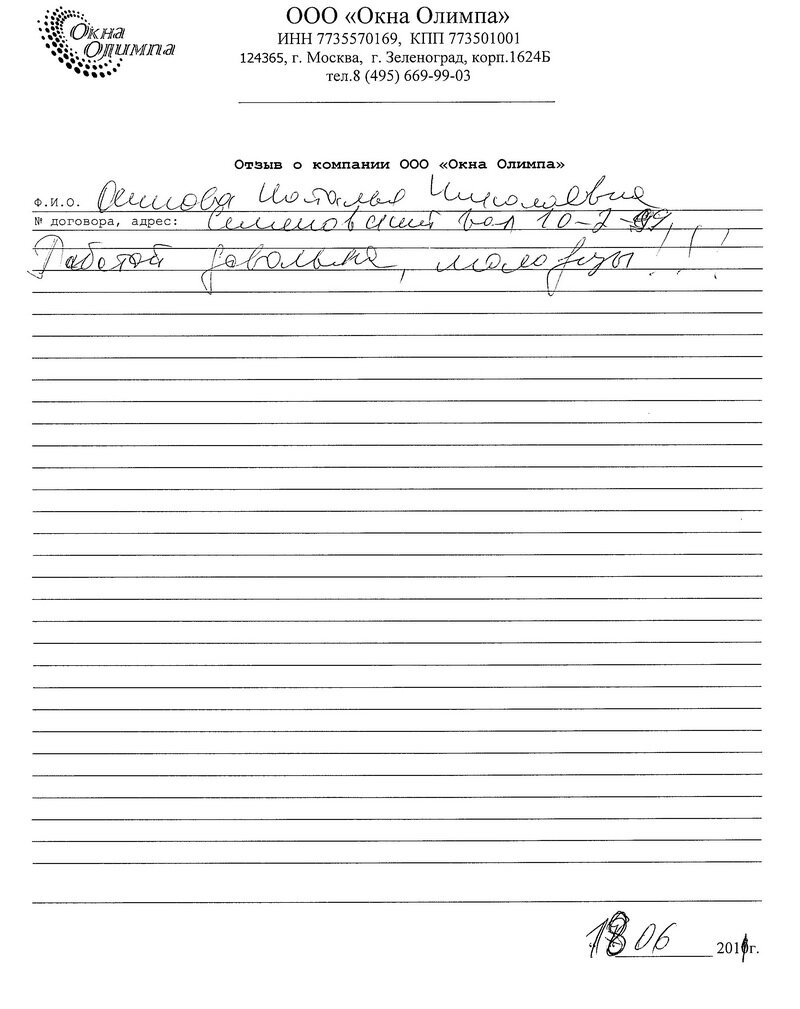 Окна
Олимпа
ООО «Окна Олимпа»
ИНН 7735570169, КПП 773501001
124365, г. Москва, г. Зеленоград, корп.1624Б
тел.8 (495) 669-99-03
Отзыв о компании ООО «Окна Олимпа»
Ф.И.О. Осипова Наталья Николаевна
№ договора, адрес: Семеновский вал 10-2-
Работой довольна, молодцы!!!
18 06 2011г.